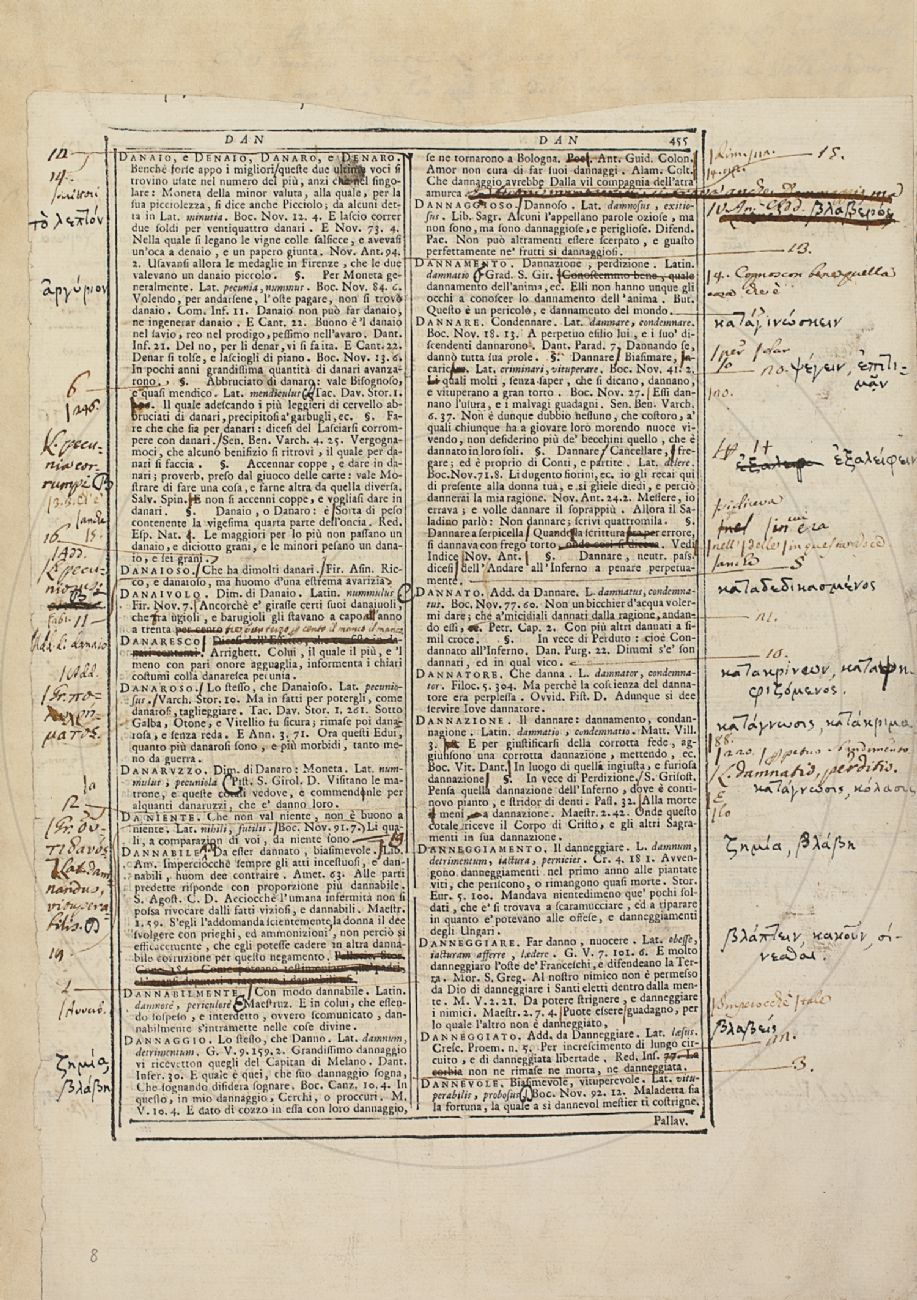 DAN
DAN
455
DANAIO, e DENAIO, DANARO, e DENARO.
Benchè forse appo i migliori queste due ultime voci si
trovino usate nel numero del più, anzi che nel singo-
lare: Moneta della minor valuta, alla quale, per la
sua picciolezza, si dice anche Picciolo; da alcuni det-
ta in Lat. minutia. Boc. Nov. 12. 4. E lascio correr
due soldi per ventiquattro danari. E Nov. 73. 4.
Nella quale si legano le vigne colle salsicce, e avevasi
un'oca a denaio, e un papero giunta. Nov. Ant. 94.
2. Usavansi allora le medaglie in Firenze, che le due
valevano un danaio piccolo. §. Per Moneta ge-
neralmente. Lat. pecunia, nummus. Boc. Nov. 84. 6.
Volendo, per andarsene, l'oste pagare, non si trovò
danaio. Com. Inf. 11. Danaio non può far danaio,
ne ingenerar danaio. E Cant. 22. Buono è 'l danaio
nel savio, reo nel prodigo, pessimo nell'avaro. Dant.
Inf. 21. Del no, per li denar, vi si fa ita. E Cant. 22.
Denar si tolse, e lasciogli di piano. Boc. Nov. 13. 6.
In pochi anni grandissima quantità di danari avanza-
rono. §. Abbruciato di danaro: vale Bisognoso,
e quasi mendico. Lat. mendiculus Tac. Dav. Stor. 1.
Il quale adescando i più leggieri di cervello ab-
bruciati di danari, precipitosi a' garbugli, ec. §. Fa-
re che che sia per danari: dicesi del Lasciarsi corrom-
pere con danari. Sen. Ben. Varch. 4. 25. Vergogna-
moci, che alcuno benifizio si ritrovi, il quale per da-
nari si faccia. §. Accennar coppe, e dare in da-
nari; proverb. preso dal giuoco delle carte: vale Mo-
strare di fare una cosa, e farne altra da quella diversa.
Salv. Spin. E non si accenni coppe, e vogliasi dare in
danari. §. Danaio, o Danaro: è Sorta di peso
contenente la vigesima quarta parte dell'oncia. Red.
Esp. Nat. 4. Le maggiori per lo più non passano un
danaio, e diciotto grani, e le minori pesano un dana-
io, e sei grani.
DANAIOSO. Che ha dimolti danari. Fir. Asin. Ric-
co, e danaioso, ma huomo d'una estrema avarizia.
DANAIVOLO. Dim. di Danaio. Latin. nummulus
Fir. Nov. 7. Ancorchè e' girasse certi suoi danaiuoli,
che fra ugioli, e barugioli gli stavano a capo all'anno
a trenta per cento
DANARESCO.
Arrighett. Colui, il quale il più, e 'l
meno con pari onore agguaglia, informenta i chiari
costumi colla danaresca pecunia.
DANAROSO. Lo stesso, che Danaioso. Lat. pecunio-
sus. Varch. Stor. 10. Ma in fatti per potergli, come
danarosi, taglieggiare. Tac. Dav. Stor. 1. 261. Sotto
Galba, Otone, e Vitellio fu sicura; rimase poi dana-
rosa, e senza reda. E Ann. 3. 71. Ora questi Edui,
quanto più danarosi sono, e più morbidi, tanto me-
no da guerra.
DANARVZZO. Dim. di Danaro: Moneta. Lat. num-
mulus, pecuniola Pist. S. Girol. D. Visitano le ma-
trone, e queste cotali vedove, e commendonle per
alquanti danaruzzi, che e' danno loro.
DA NIENTE. Che non val niente, non è buono a
niente. Lat. nihili, futilis. Boc. Nov. 91. 7. Li qua-
li, a comparazion di voi, da niente sono
DANNABILE. Da esser dannato, biasimevole. Lib.
Am. Imperciocchè sempre gli atti incestuosi, e dan-
nabili, huom dee contraire. Amet. 63. Alle parti
predette risponde con proporzione più dannabile.
S. Agost. C. D. Acciocchè l'umana infermità non si
possa rivocare dalli fatti viziosi, e dannabili. Maestr.
1. 59. S'egli l'addomanda scientemente, la donna il dee
svolgere con prieghi, ed ammonizioni, non perciò sì
efficacemente, che egli potesse cadere in altra danna-
bile corruzione per questo negamento.
DANNABILMENTE. Con modo dannabile. Latin.
damnosè, periculosè Maestruz. E in colui, che essen-
do sospeso, e interdetto, ovvero scomunicato, dan-
nabilmente s'intramette nelle cose divine.
DANNAGGIO. Lo stesso, che Danno. Lat. damnum,
detrimentum. G. V. 9. 159. 2. Grandissimo dannaggio
vi ricevetton quegli del Capitan di Melano. Dant.
Infer. 30. E quale è quei, che suo dannaggio sogna,
Che sognando disidera sognare. Boc. Canz. 10. 4. In
questo, in mio dannaggio, Cerchi, o proccuri. M.
V. 10. 4. E dato di cozzo in essa con loro dannaggio,
se ne tornarono a Bologna. Ant. Guid. Colon.
Amor non cura di far suoi dannaggi. Alam. Colt.
Che dannaggio avrebbe Dalla vil compagnia dell'atra
amurca
DANNAGGIOSO. Dannoso. Lat. damnosus, exitio-
sus. Lib. Sagr. Alcuni l'appellano parole oziose, ma
non sono, ma sono dannaggiose, e perigliose. Difend.
Pac. Non può altramenti essere scerpato, e guasto
perfettamente ne' frutti sì dannaggiosi.
DANNAMENTO. Dannazione, perdizione. Latin.
damnatio Grad. S. Gir. Conostemmo bene, quale
dannamento dell'anima, ec. Elli non hanno unque gli
occhi a conoscer lo dannamento dell'anima. But.
Questo è un pericolo, e dannamento del mondo.
DANNARE. Condennare. Lat. damnare, condemnare.
Boc. Nov. 18. 13. A perpetuo esilio lui, e i suo' di-
scendenti dannarono. Dant. Parad. 7. Dannando se,
dannò tutta sua prole. §. Dannare, Biasimare,
Lat. criminari, vituperare. Boc. Nov. 41. 2.
Li quali molti, senza saper, che si dicano, dannano,
e vituperano a gran torto. Boc. Nov. 27. Essi dan-
nano l'usura, e i malvagi guadagni. Sen. Ben. Varch.
6. 37. Non è dunque dubbio nessuno, che costoro, a'
quali chiunque ha a giovare loro morendo nuoce vi-
vendo, non desiderino più de' becchini quello, che è
dannato in loro soli. §. Dannare, Cancellare, fre-
gare; ed è proprio di Conti, e partite. Lat. delere.
Boc. Nov. 71. 8. Li dugento fiorini, ec. io gli recai qui
di presente alla donna tua, e sì gliele diedi, e perciò
dannerai la mia ragione. Nov. Ant. 24. 2. Messere, io
errava; e volle dannare il soprappiù. Allora il Sa-
ladino parlò: Non dannare; scrivi quattromila. §.
Dannare a serpicella Quando la scrittura fatta per errore,
si dannava con frego torto, onde così si diceva. Vedi
Indice Nov. Ant. §. Dannare, neutr. pass.
dicesi dell'Andare all'Inferno a penare perpetua-
mente.
DANNATO. Add. da Dannare. L. damnatus, condemna-
tus. Boc. Nov. 77. 60. Non un bicchier d'acqua voler-
mi dare; che a' micidiali dannati dalla ragione, andan-
do essi, ec. Petr. Cap. 2. Con più altri dannati a si-
mil croce. §. In vece di Perduto: cioè Con-
dannato all'Inferno. Dan. Purg. 22. Dimmi s'e' son
dannati, ed in qual vico.
DANNATORE. Che danna. L. damnator, condemna-
tor. Filoc. 5. 304. Ma perchè la coscienza del danna-
tore era perplessa. Ovvid. Pist. D. Adunque si dee
servire Iove dannatore.
DANNAZIONE. Il dannare: dannamento, condan-
nagione. Latin. damnatio, condemnatio. Matt. Vill.
3. E per giustificarsi della corrotta fede, ag-
giunsono una corrotta dannazione, mettendo, ec.
Boc. Vit. Dant. In luogo di quella ingiusta, e furiosa
dannazione §. In vece di Perdizione. S. Grisost.
Pensa quella dannazion dell'Inferno, dove è conti-
novo pianto, e stridor di denti. Pass. 32. Alla morte
il meni a dannazione. Maestr. 2. 42. Onde questo
cotale riceve il Corpo di Cristo, e gli altri Sagra-
menti in sua dannazione
DANNEGGIAMENTO. Il danneggiare. L. damnum,
detrimentum, iactura, pernicies. Cr. 4. 18 1. Avven-
gono danneggiamenti nel primo anno alle piantate
viti, che periscono, o rimangono quasi morte. Stor.
Eur. 5. 100. Mandava nientedimeno que' pochi sol-
dati, che e' si trovava a scaramucciare, ed a riparare
in quanto e' potevano alle offese, e danneggiamenti
degli Ungari.
DANNEGGIARE. Far danno, nuocere. Lat. obesse,
iacturam afferre, laedere. G. V. 7. 101. 6. E molto
danneggiaro l'oste de' Franceschi, e difendeano la Ter-
ra. Mor. S. Greg. Al nostro nimico non è permesso
da Dio di danneggiare i Santi eletti dentro dalla men-
te. M. V. 2. 21. Da potere strignere, e danneggiare
i nimici. Maestr. 2. 7. 4. Puote essere guadagno, per
lo quale l'altro non è danneggiato.
DANNEGGIATO. Add. da Danneggiare. Lat. laesus.
Cresc. Proem. n. 5. Per increscimento di lungo cir-
cuito, e di danneggiata libertade. Red. Ins. 77. La
non ne rimase ne morta, ne danneggiata.
DANNEVOLE. Biasimevole, vitupervole. Lat. vitu-
perabilis, probosus Boc. Nov. 92. 12. Maladetta sia
la fortuna, la quale a sì dannevol mestier ti costrigne.
Pallav.
14.
τὸ λεπτὸν
ἀργύριον
6
16
11
12
19
ζημία,
βλάβη
15.
βλαβερός
13.
καταγινώσκειν
ψέγειν, ἐπιτι-
μᾶν
ἐξαλείφειν
καταδεδικασμένος
10.
κατάγνωσις, κατάκριμα
damnatio, perditio.
κατάγνωσις, κόλασις
ζημία, βλάβη
βλάπτειν, κακοῦν, σί-
νεσθαι.
3.
8